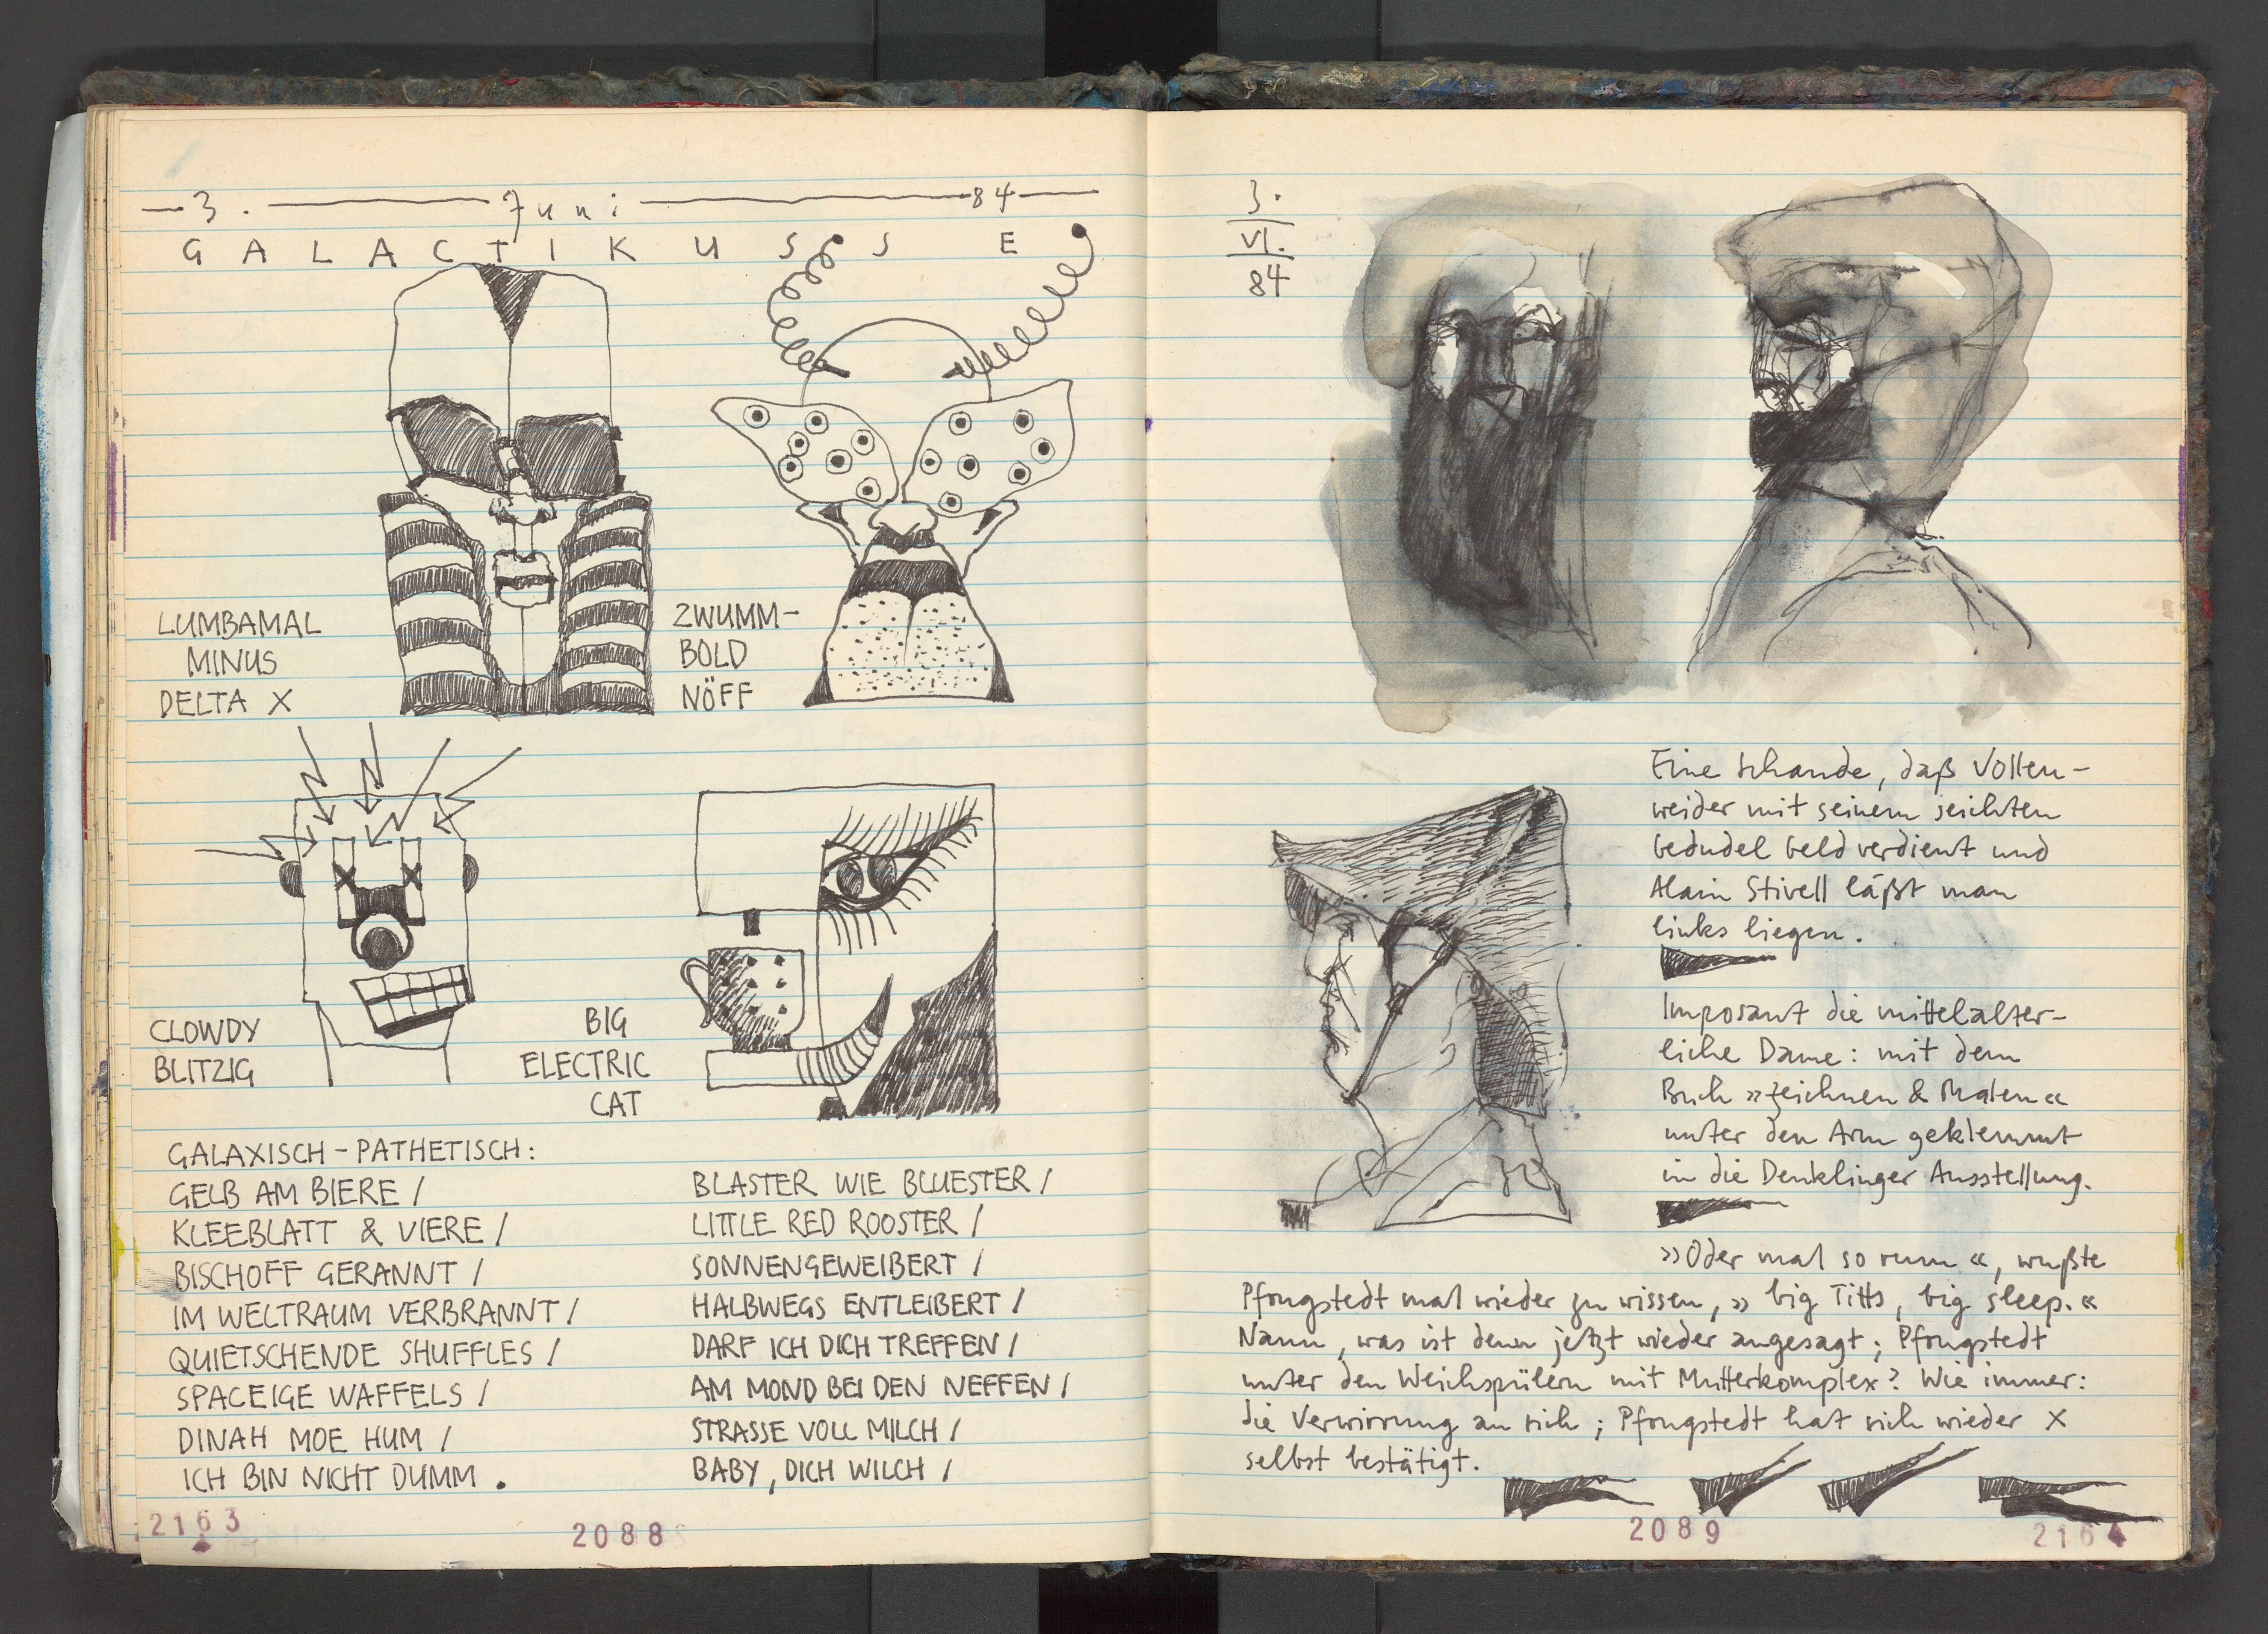 3. Juni 84
GALACTIKUSSE
LUMBAMAL
MINUS
DELTA X
ZWUMM-
BOLD
NÖFF
CLOWDY
BLITZIG
BIG
ELECTRIC
CAT
GALAXISCH-PATHETISCH:
GELB AM BIERE /
KLEEBLATT & VIERE /
BISCHOFF GERANNT /
IM WELTRAUM VERBRANNT /
QUIETSCHENDE SHUFFLES /
SPACEIGE WAFFELS /
DINAH MOE HUM /
ICH BIN NICHT DUMM.
BLASTER WIE BLUESTER /
LITTLE RED ROOSTER /
SONNENGEWEIBERT /
HALBWEGS ENTLEIBERT /
DARF ICH DICH TREFFEN /
AM MOND BEI DEN NEFFEN /
STRASSE VOLL MILCH /
BABY, DICH WILCH /
2163
2088
3.
VI.
84
Eine Schande, daß Vollen-
weider mit seinem seichten
Gedudel Geld verdient und
Alain Stivell läßt man
links liegen.
Imposant die mittelalter-
liche Dame: mit dem
Buch »Zeichnen & Malen«
unter den Arm geklemmt
in die Denklinger Ausstellung.
»Oder mal so rum«, wußte
Pfongstedt mal wieder zu wissen, »big Titts, big sleep.«
Nann, was ist denn jetzt wieder angesagt; Pfongstedt
unter den Weichspülern mit Mutterkomplex? Wie immer:
die Verwirrung an sich; Pfongstedt hat sich wieder X
selbst bestätigt.
2089
2164